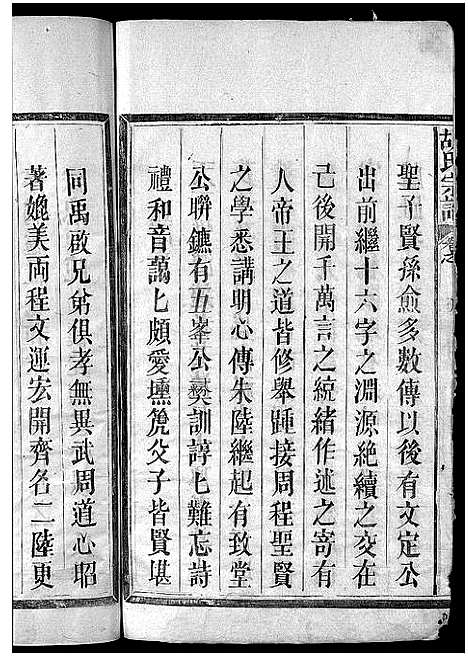 胡氏宗譜
聖子賢孫愈多數傳以後有文定公
出前繼十六字之淵源絶續之交在
己後開千萬言之統緒作述之寄有
人帝王之道皆修舉踵接周程聖賢
之學悉講明心傳朱陸繼起有致堂
公聨鑣有五峯公奬訓諄匕難忘詩
禮和音藹匕頗愛壎箎父子皆賢堪
同禹啟兄弟俱孝無異武周道心昭
著媲美両程文運宏開齊名二陸更